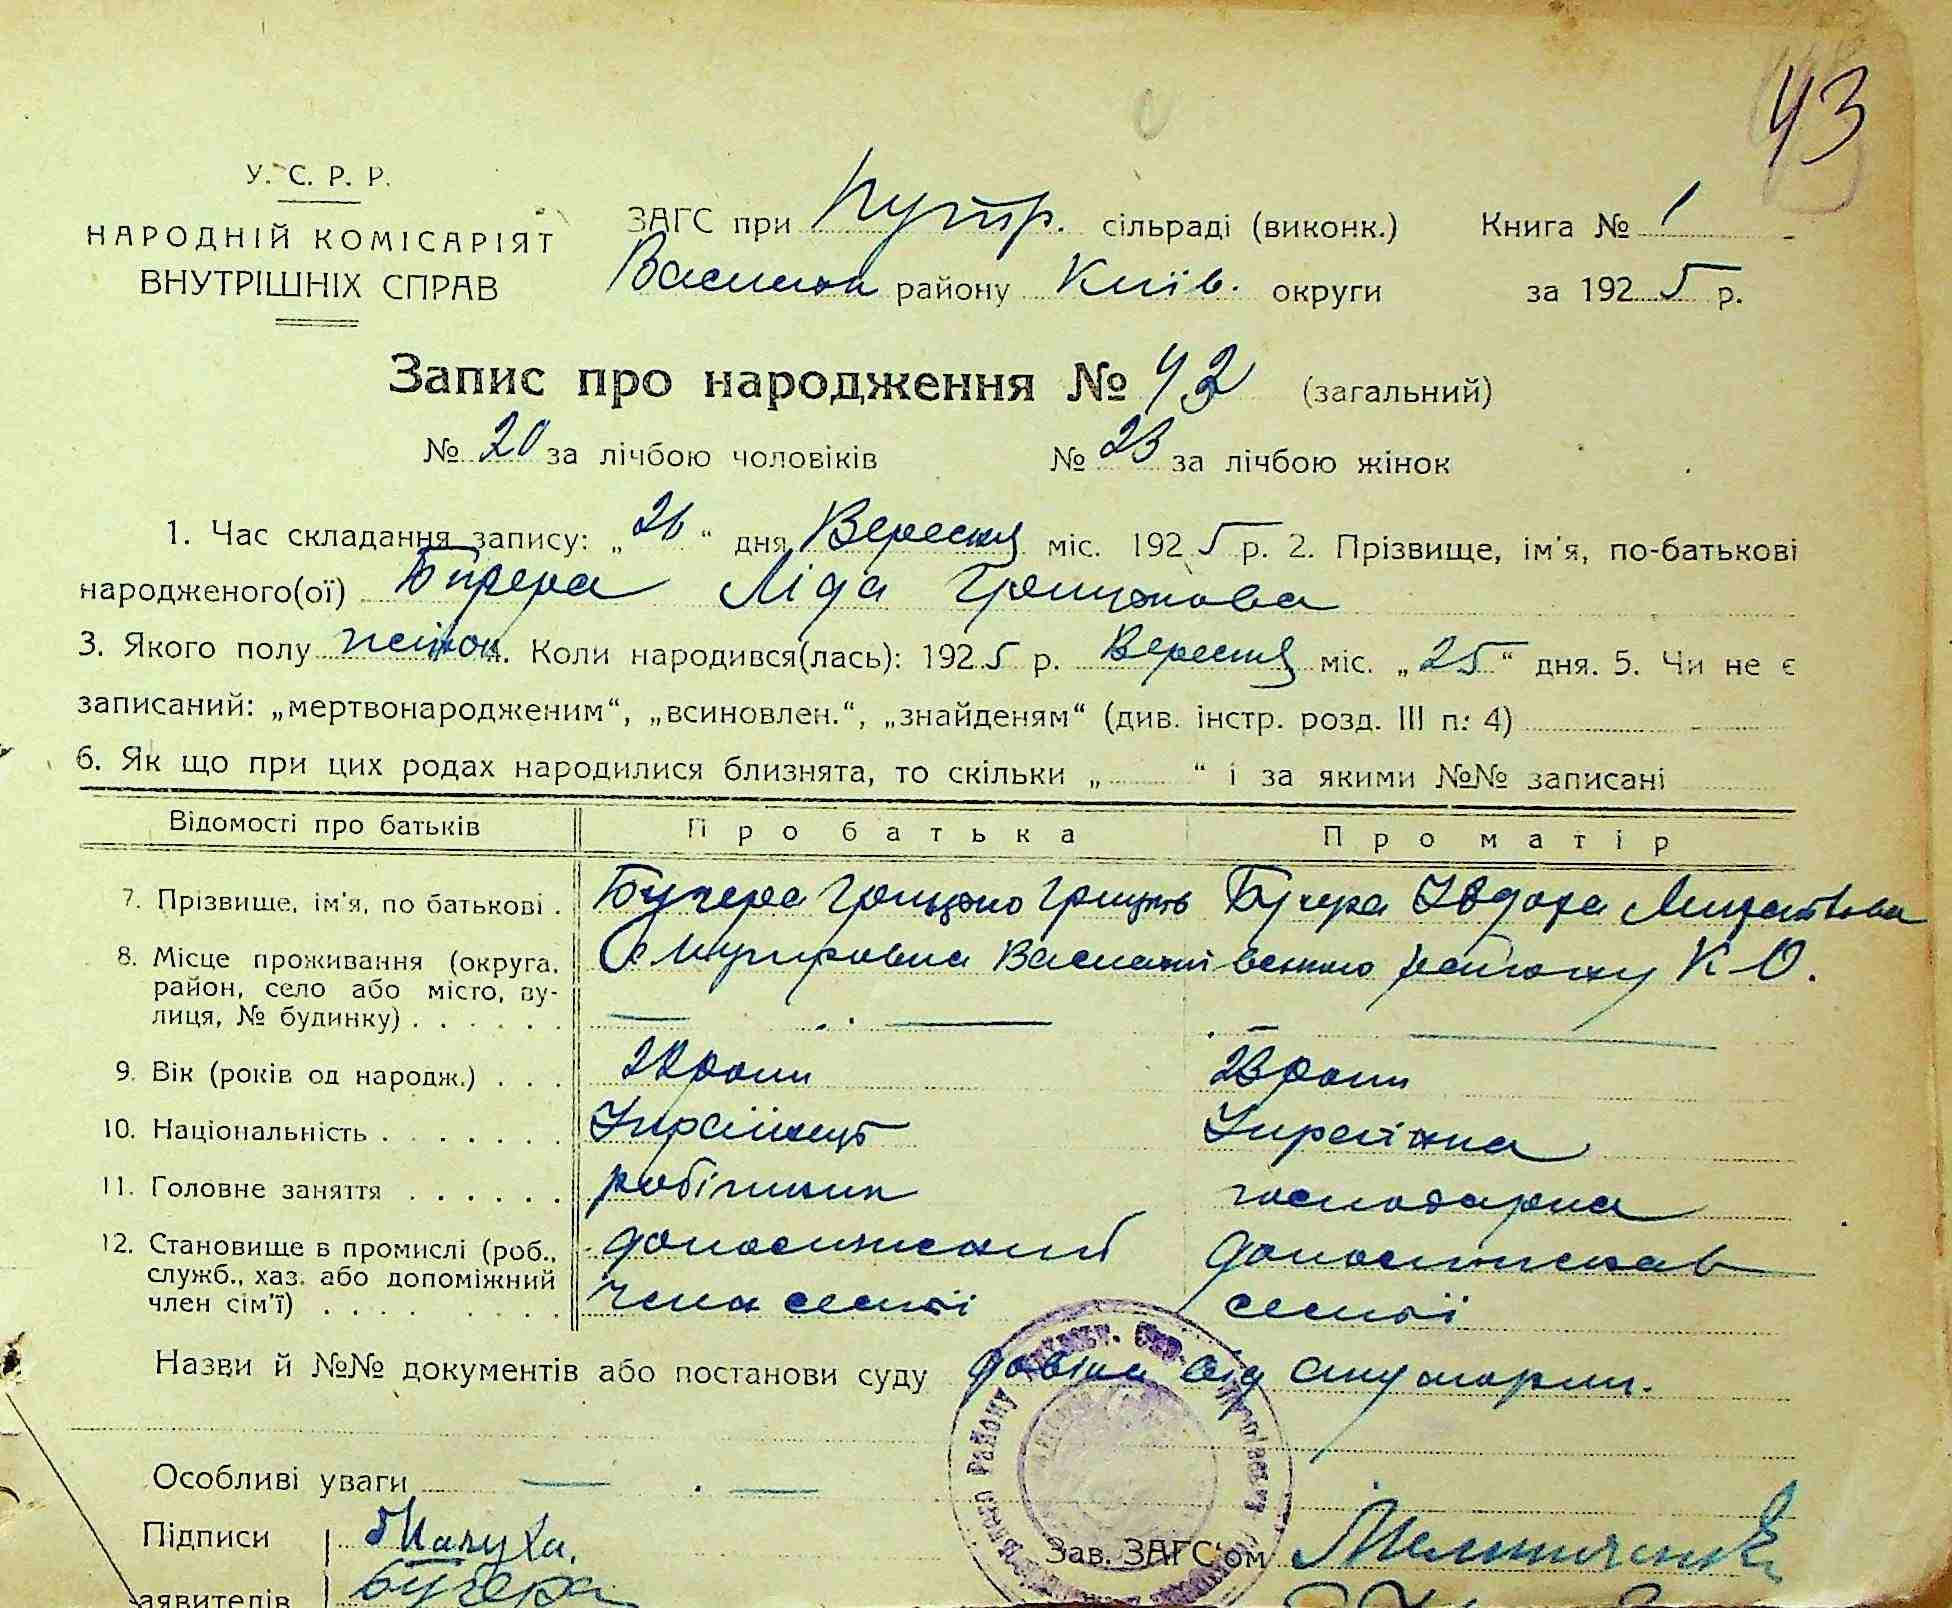 43
У. С. Р. Р.
НАРОДНІЙ КОМІСАРІЯТ
ВНУТРІШНІХ СПРАВ
ЗАГС при Путр. сільраді (виконк.) Книга № 1
району Київ. округи за 1925 р.
Запис про народження № 43 (загальний)
№ 20 за лічбою чоловіків № 23 за лічбою жінок
1. Час складання запису: „26“ дня Вересня міс. 1925 р. 2. Прізвище, ім'я, по-батькові
народженого(ої) Бучера Ліда Грицькова
3. Якого полу жіноч. Коли народився(лась): 1925 р. Вересня міс. „25“ дня. 5. Чи не є
записаний: „мертвонародженим“, „всиновлен.“, „знайденям“ (див. інстр. розд. III п. 4)
6. Як що при цих родах народилися близнята, то скільки „ “ і за якими №№ записані
Відомості про батьків Про батька Про матір
7. Прізвище, ім'я, по батькові . Бучера Грицько Грицьків Бучера
8. Місце проживання (округа, район, село або місто, вулиця, № будинку) району К О.
9. Вік (років од народж.) . . . роки 23 роки
10. Національність . . . . . . . Українець Українка
11. Головне заняття . . . . . . робітник господарка
12. Становище в промислі (роб., служб., хаз. або допоміжний член сім'ї) член семьї семьї
Назви й №№ документів або постанови суду довідка від
Особливі уваги
Підписи
Бучера
заявителів
Зав. ЗАГС'ом